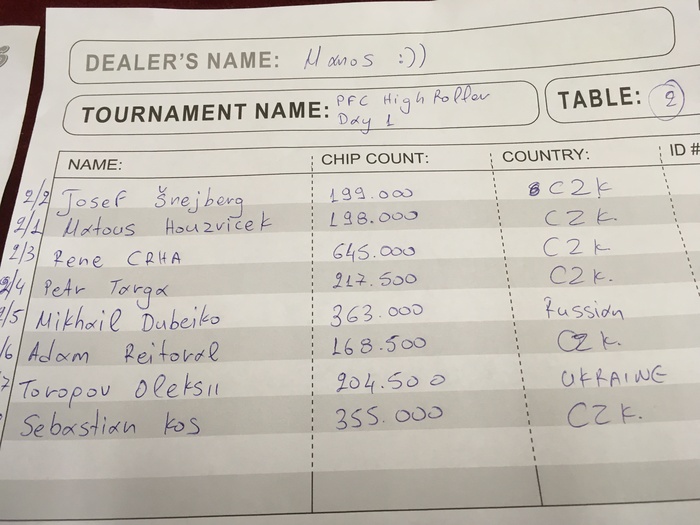 DEALER'S NAME: Manos :))
TOURNAMENT NAME: PFC High Roller
Day 1
TABLE: 2
NAME: CHIP COUNT: COUNTRY: ID #
2/2 Josef Šrejberg 199.000 CZK
2/1 Matous Houzvicek 198.000 CZK.
2/3 Rene CRHA 645.000 CZK
2/4 Petr Targa 217.500 CZK.
/5 Mikhail Dubeiko 363.000 Russian
/6 Adam Reitoral 168.500 CZK.
7 Toropov Oleksii 204.500 UKRAINE
Sebastian Kos 355.000 CZK.